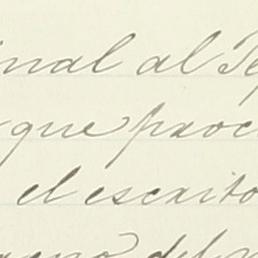 inal al Te
que proc
el escrito
del